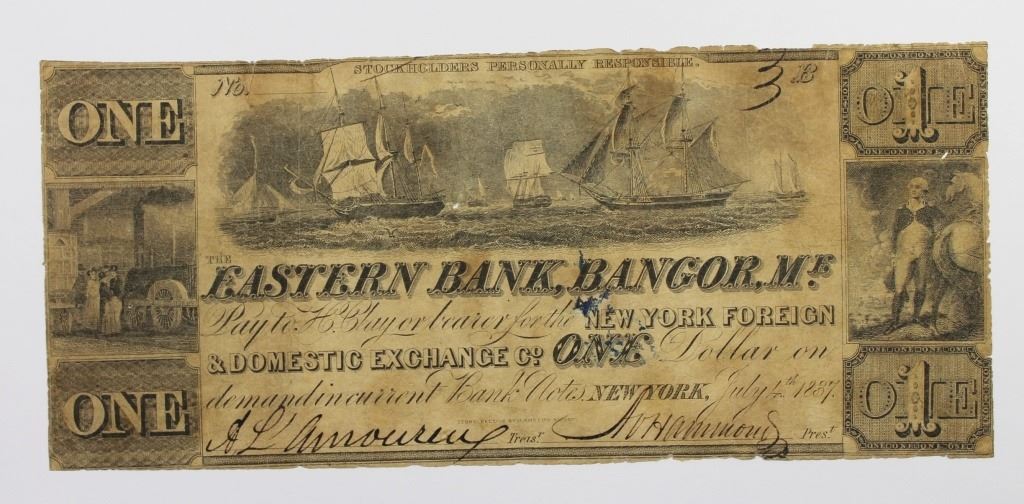 STOCKHOLDERS PERSONALLY RESPONSIBLE.
No. 3 B
ONE
ONE
THE
EASTERN BANK, BANGOR, ME
Pay to H. Clay or bearer for the NEW YORK FOREIGN
& DOMESTIC EXCHANGE CO. ONE Dollar on
demand in current Bank Notes. NEW YORK, July 4th 1837.
Treast. Hammond Prest.
ONE
ONE